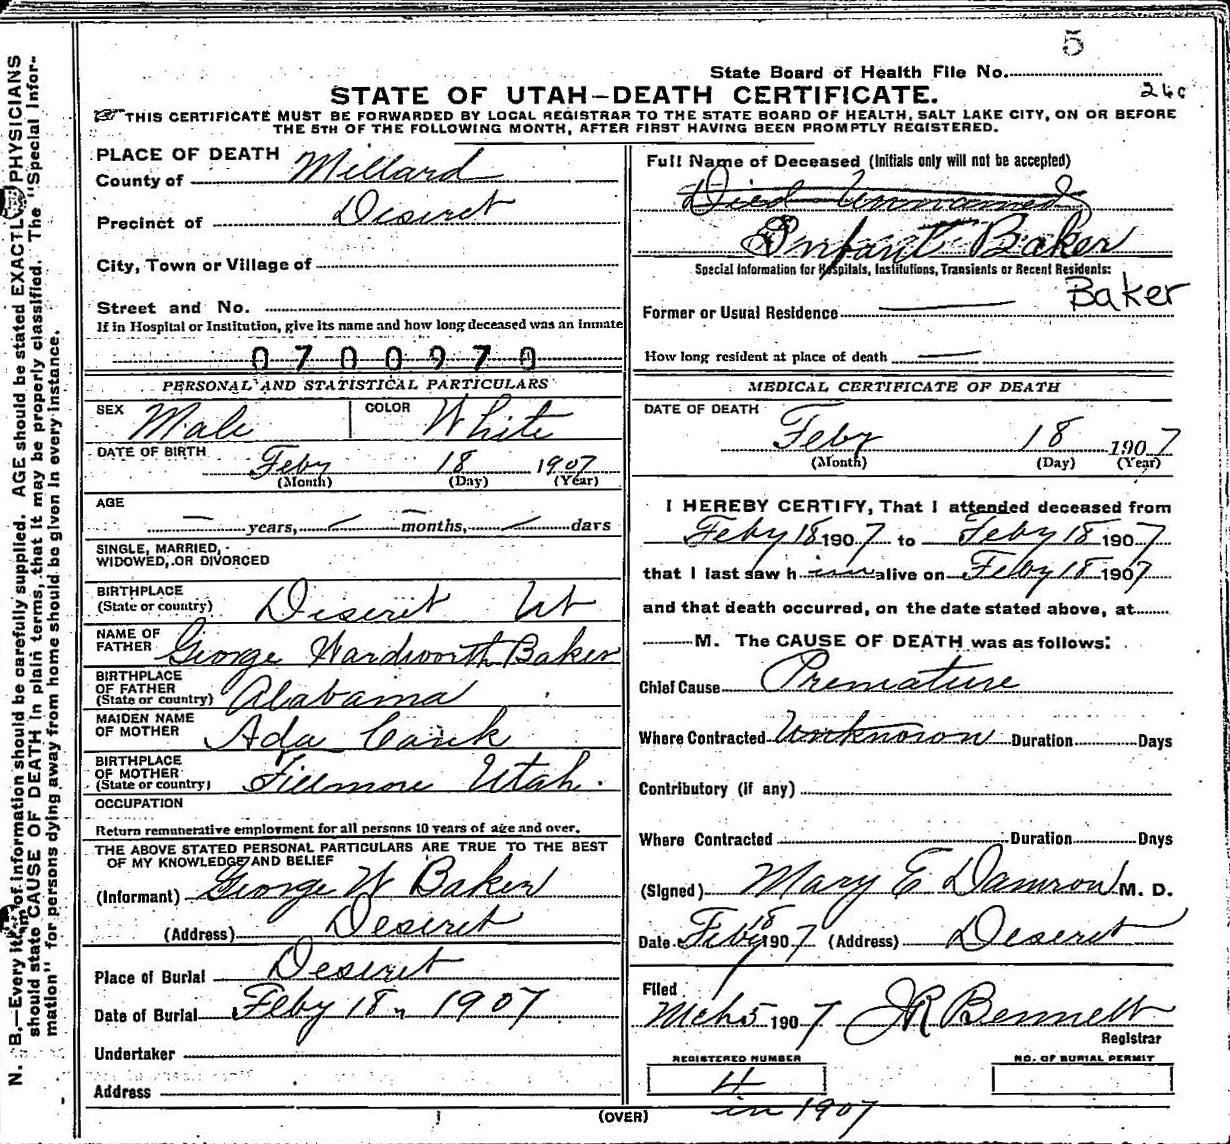 5
State Board of Health File No.
260
STATE OF UTAH—DEATH CERTIFICATE.
THIS CERTIFICATE MUST BE FORWARDED BY LOCAL REGISTRAR TO THE STATE BOARD OF HEALTH, SALT LAKE CITY, ON OR BEFORE
THE 5TH OF THE FOLLOWING MONTH, AFTER FIRST HAVING BEEN PROMPTLY REGISTERED.
PLACE OF DEATH
County of Millard
Precinct of Deseret
City, Town or Village of
Street and No.
If in Hospital or Institution, give its name and how long deceased was an Inmate
0700970
PERSONAL AND STATISTICAL PARTICULARS
SEX Male COLOR White
DATE OF BIRTH
Feby 18 1907
(Month) (Day) (Year)
AGE
— years, — months, — days
SINGLE, MARRIED,
WIDOWED, OR DIVORCED
BIRTHPLACE
(State or country) Deseret Ut
NAME OF
FATHER George Wardsworth Baker
BIRTHPLACE
OF FATHER
(State or country) Alabama
MAIDEN NAME
OF MOTHER Ada
BIRTHPLACE
OF MOTHER
(State or country) Fillmore Utah.
OCCUPATION
Return remunerative employment for all persons 10 years of age and over.
THE ABOVE STATED PERSONAL PARTICULARS ARE TRUE TO THE BEST
OF MY KNOWLEDGE AND BELIEF
(Informant) George W Baker
(Address) Deseret
Place of Burial Deseret
Date of Burial Feby 18, 1907
Undertaker
Address
Full Name of Deceased (Initials only will not be accepted)
Died Unnamed
Infant Baker
Special Information for Hospitals, Institutions, Transients or Recent Residents:
Baker
Former or Usual Residence —
How long resident at place of death —
MEDICAL CERTIFICATE OF DEATH
DATE OF DEATH
Feby 18 1907
(Month) (Day) (Year)
I HEREBY CERTIFY, That I attended deceased from
Feby 18 1907 to Feby 18 1907
that I last saw h im alive on Feby 18 1907
and that death occurred, on the date stated above, at
M. The CAUSE OF DEATH was as follows:
Chief Cause Premature
Where Contracted Unknown Duration Days
Contributory (if any)
Where Contracted Duration Days
(Signed) Mary E Damron M. D.
Date Feby 18 1907 (Address) Deseret
Filed
Mch 5 1907 JR Bennett
Registrar
REGISTERED NUMBER
4
in 1907
NO. OF BURIAL PERMIT
(OVER)
N. B.—Every item of information should be carefully supplied. AGE should be stated EXACTLY. PHYSICIANS
should state CAUSE OF DEATH in plain terms, that it may be properly classified. The "Special Infor-
mation" for persons dying away from home should be given in every instance.